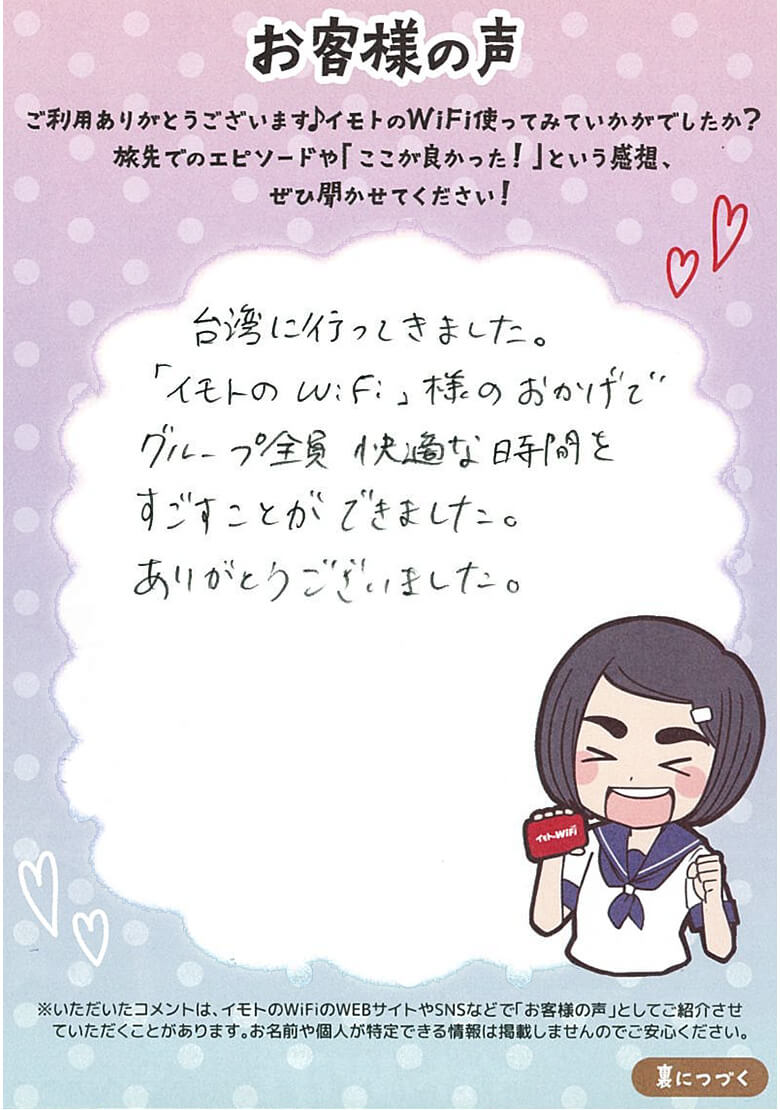 お客様の声
ご利用ありがとうございます♪イモトのWiFi使ってみていかがでしたか？
旅先でのエピソードや「ここが良かった！」という感想、
ぜひ聞かせてください！
台湾に行ってきました。
「イモトのWiFi」様のおかげで
グループ全員 快適な時間を
すごすことができました。
ありがとうございました。
イモトのWiFi
※いただいたコメントは、イモトのWiFiのWEBサイトやSNSなどで「お客様の声」としてご紹介させ
ていただくことがあります。お名前や個人が特定できる情報は掲載しませんのでご安心ください。
裏につづく